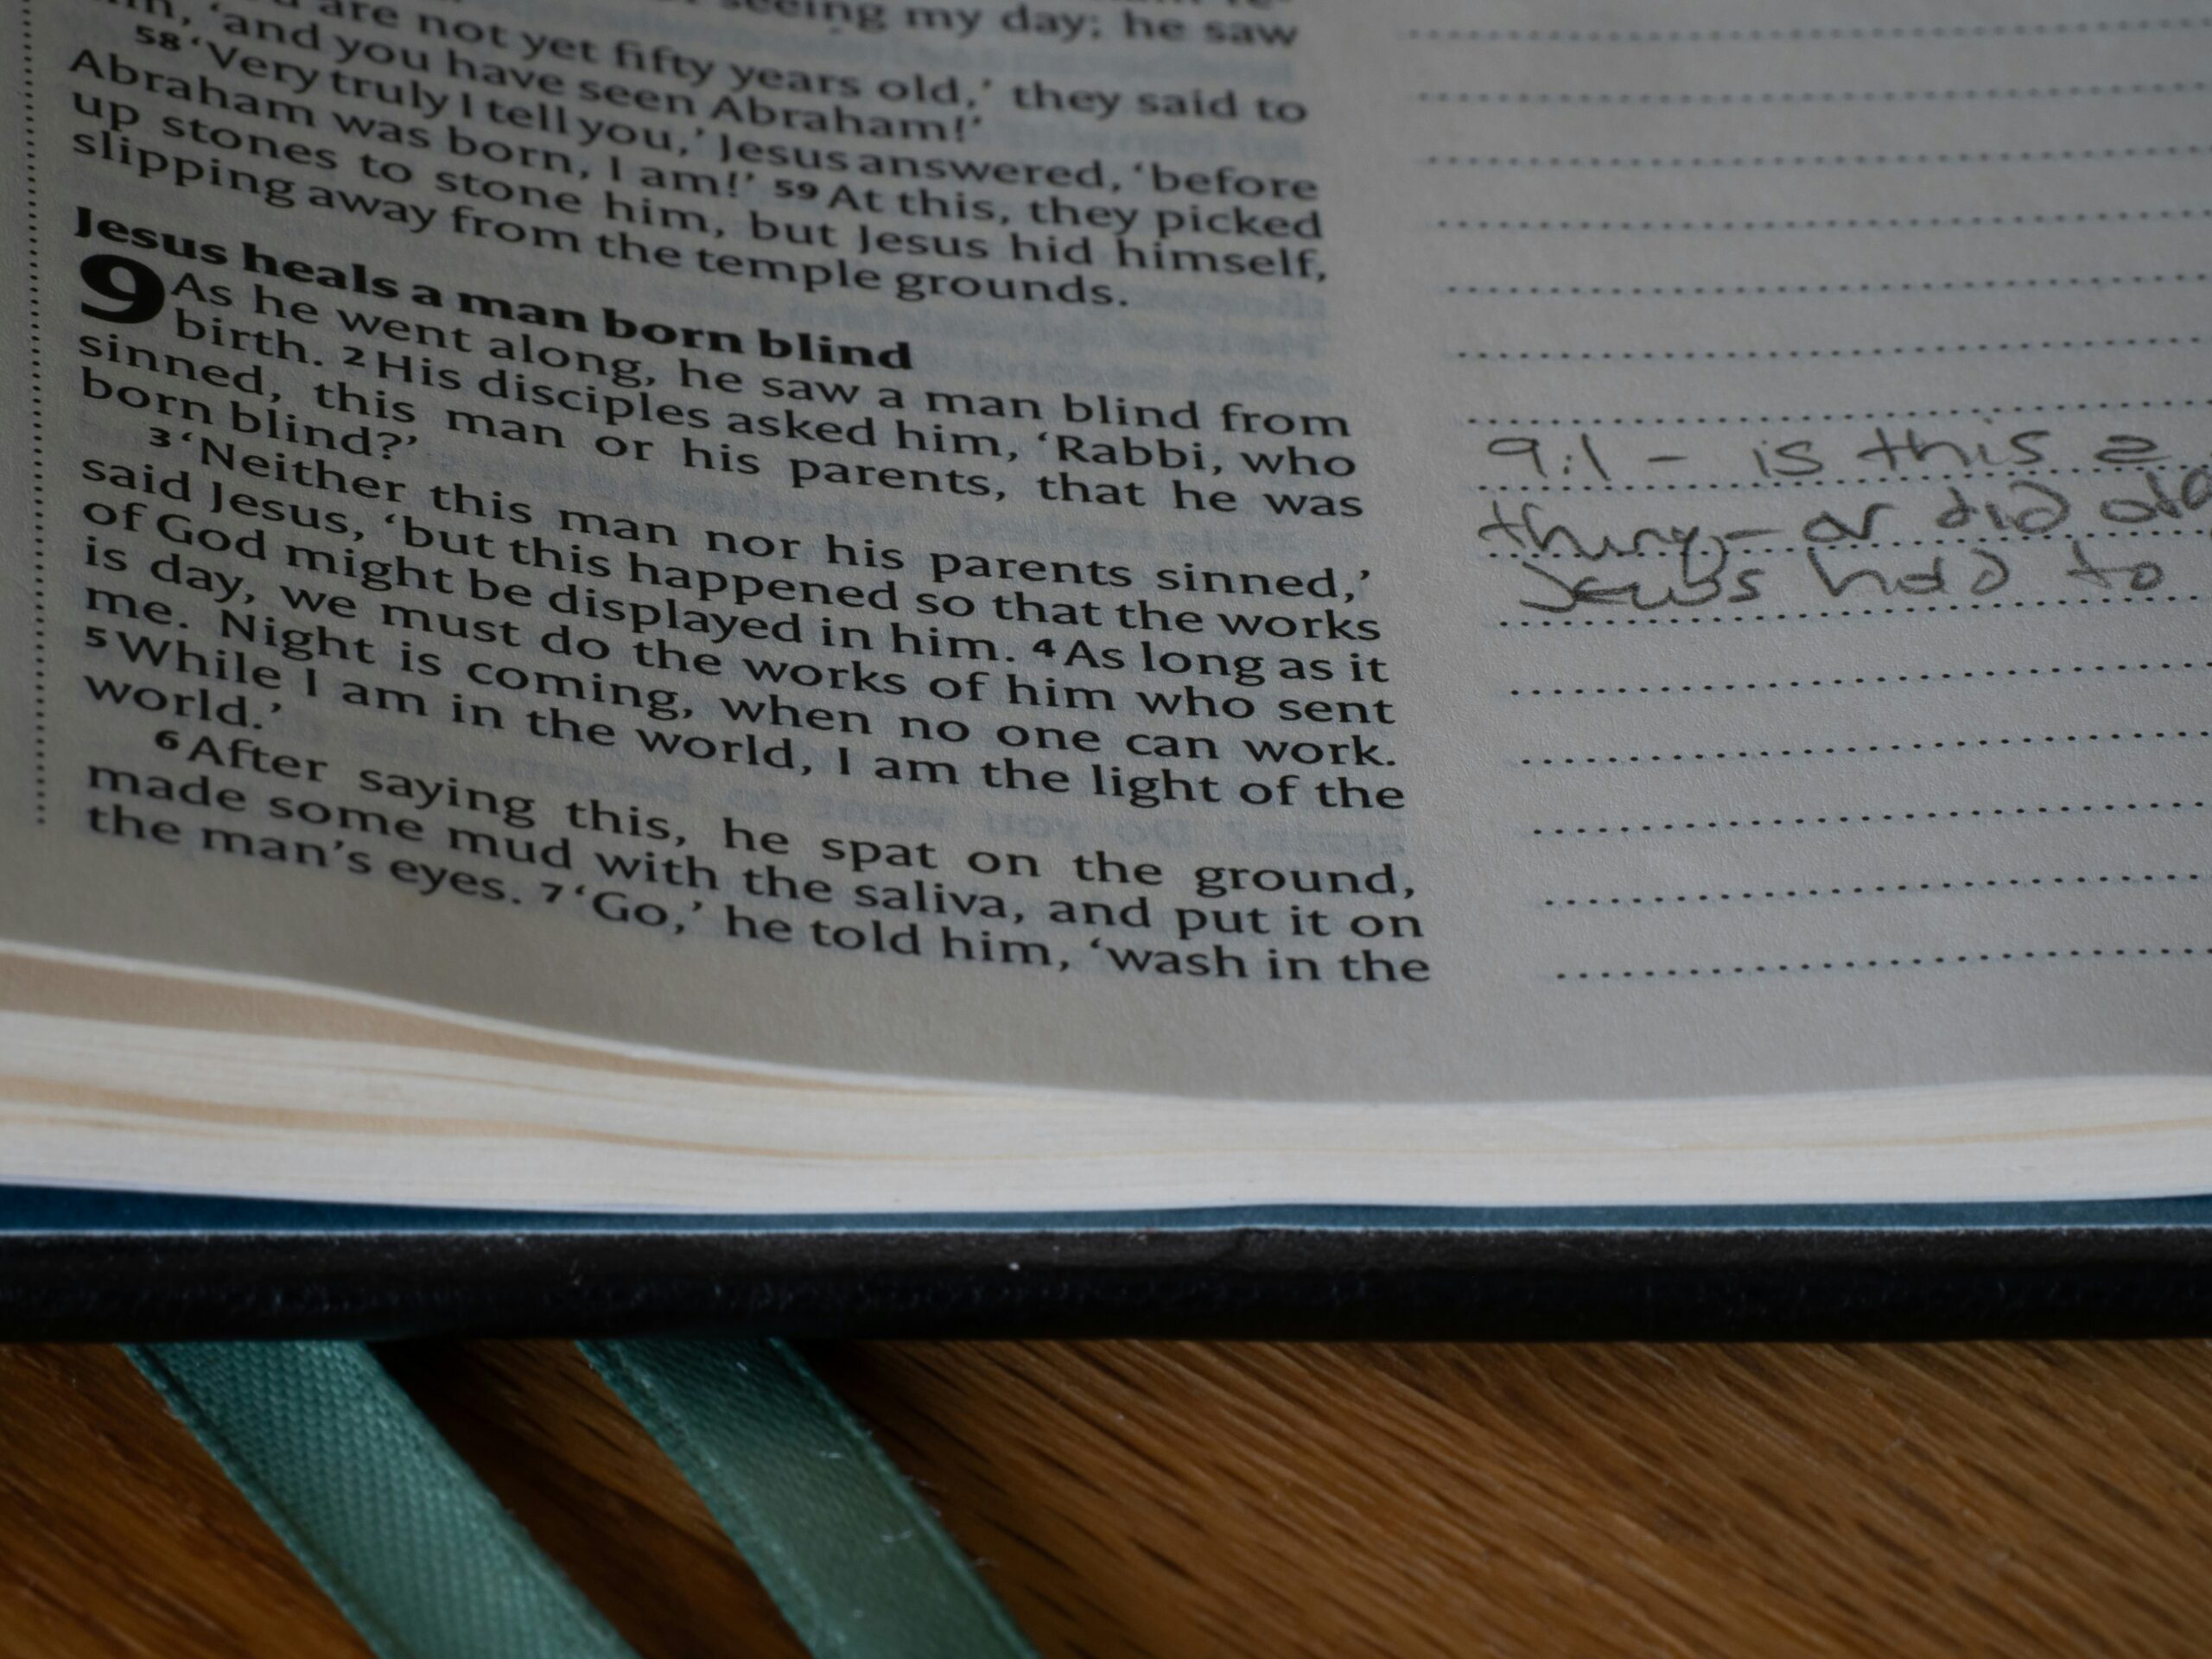 seeing my day; he saw
are not yet fifty years old,’ they said to
‘and you have seen Abraham!’
58 ‘Very truly I tell you,’ Jesus answered, ‘before
Abraham was born, I am!’ 59 At this, they picked
up stones to stone him, but Jesus hid himself,
slipping away from the temple grounds.
Jesus heals a man born blind
9 As he went along, he saw a man blind from
birth. 2 His disciples asked him, ‘Rabbi, who
sinned, this man or his parents, that he was
born blind?’
3 ‘Neither this man nor his parents sinned,’
said Jesus, ‘but this happened so that the works
of God might be displayed in him. 4 As long as it
is day, we must do the works of him who sent
me. Night is coming, when no one can work.
5 While I am in the world, I am the light of the
world.’
6 After saying this, he spat on the ground,
made some mud with the saliva, and put it on
the man’s eyes. 7 ‘Go,’ he told him, ‘wash in the
9:1 - is this a
thing - or did
Jews had to